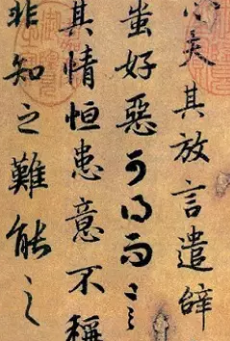 心夫其放言遣辭
蚩好惡可得而言
其情恒患意不稱
非知之難能之